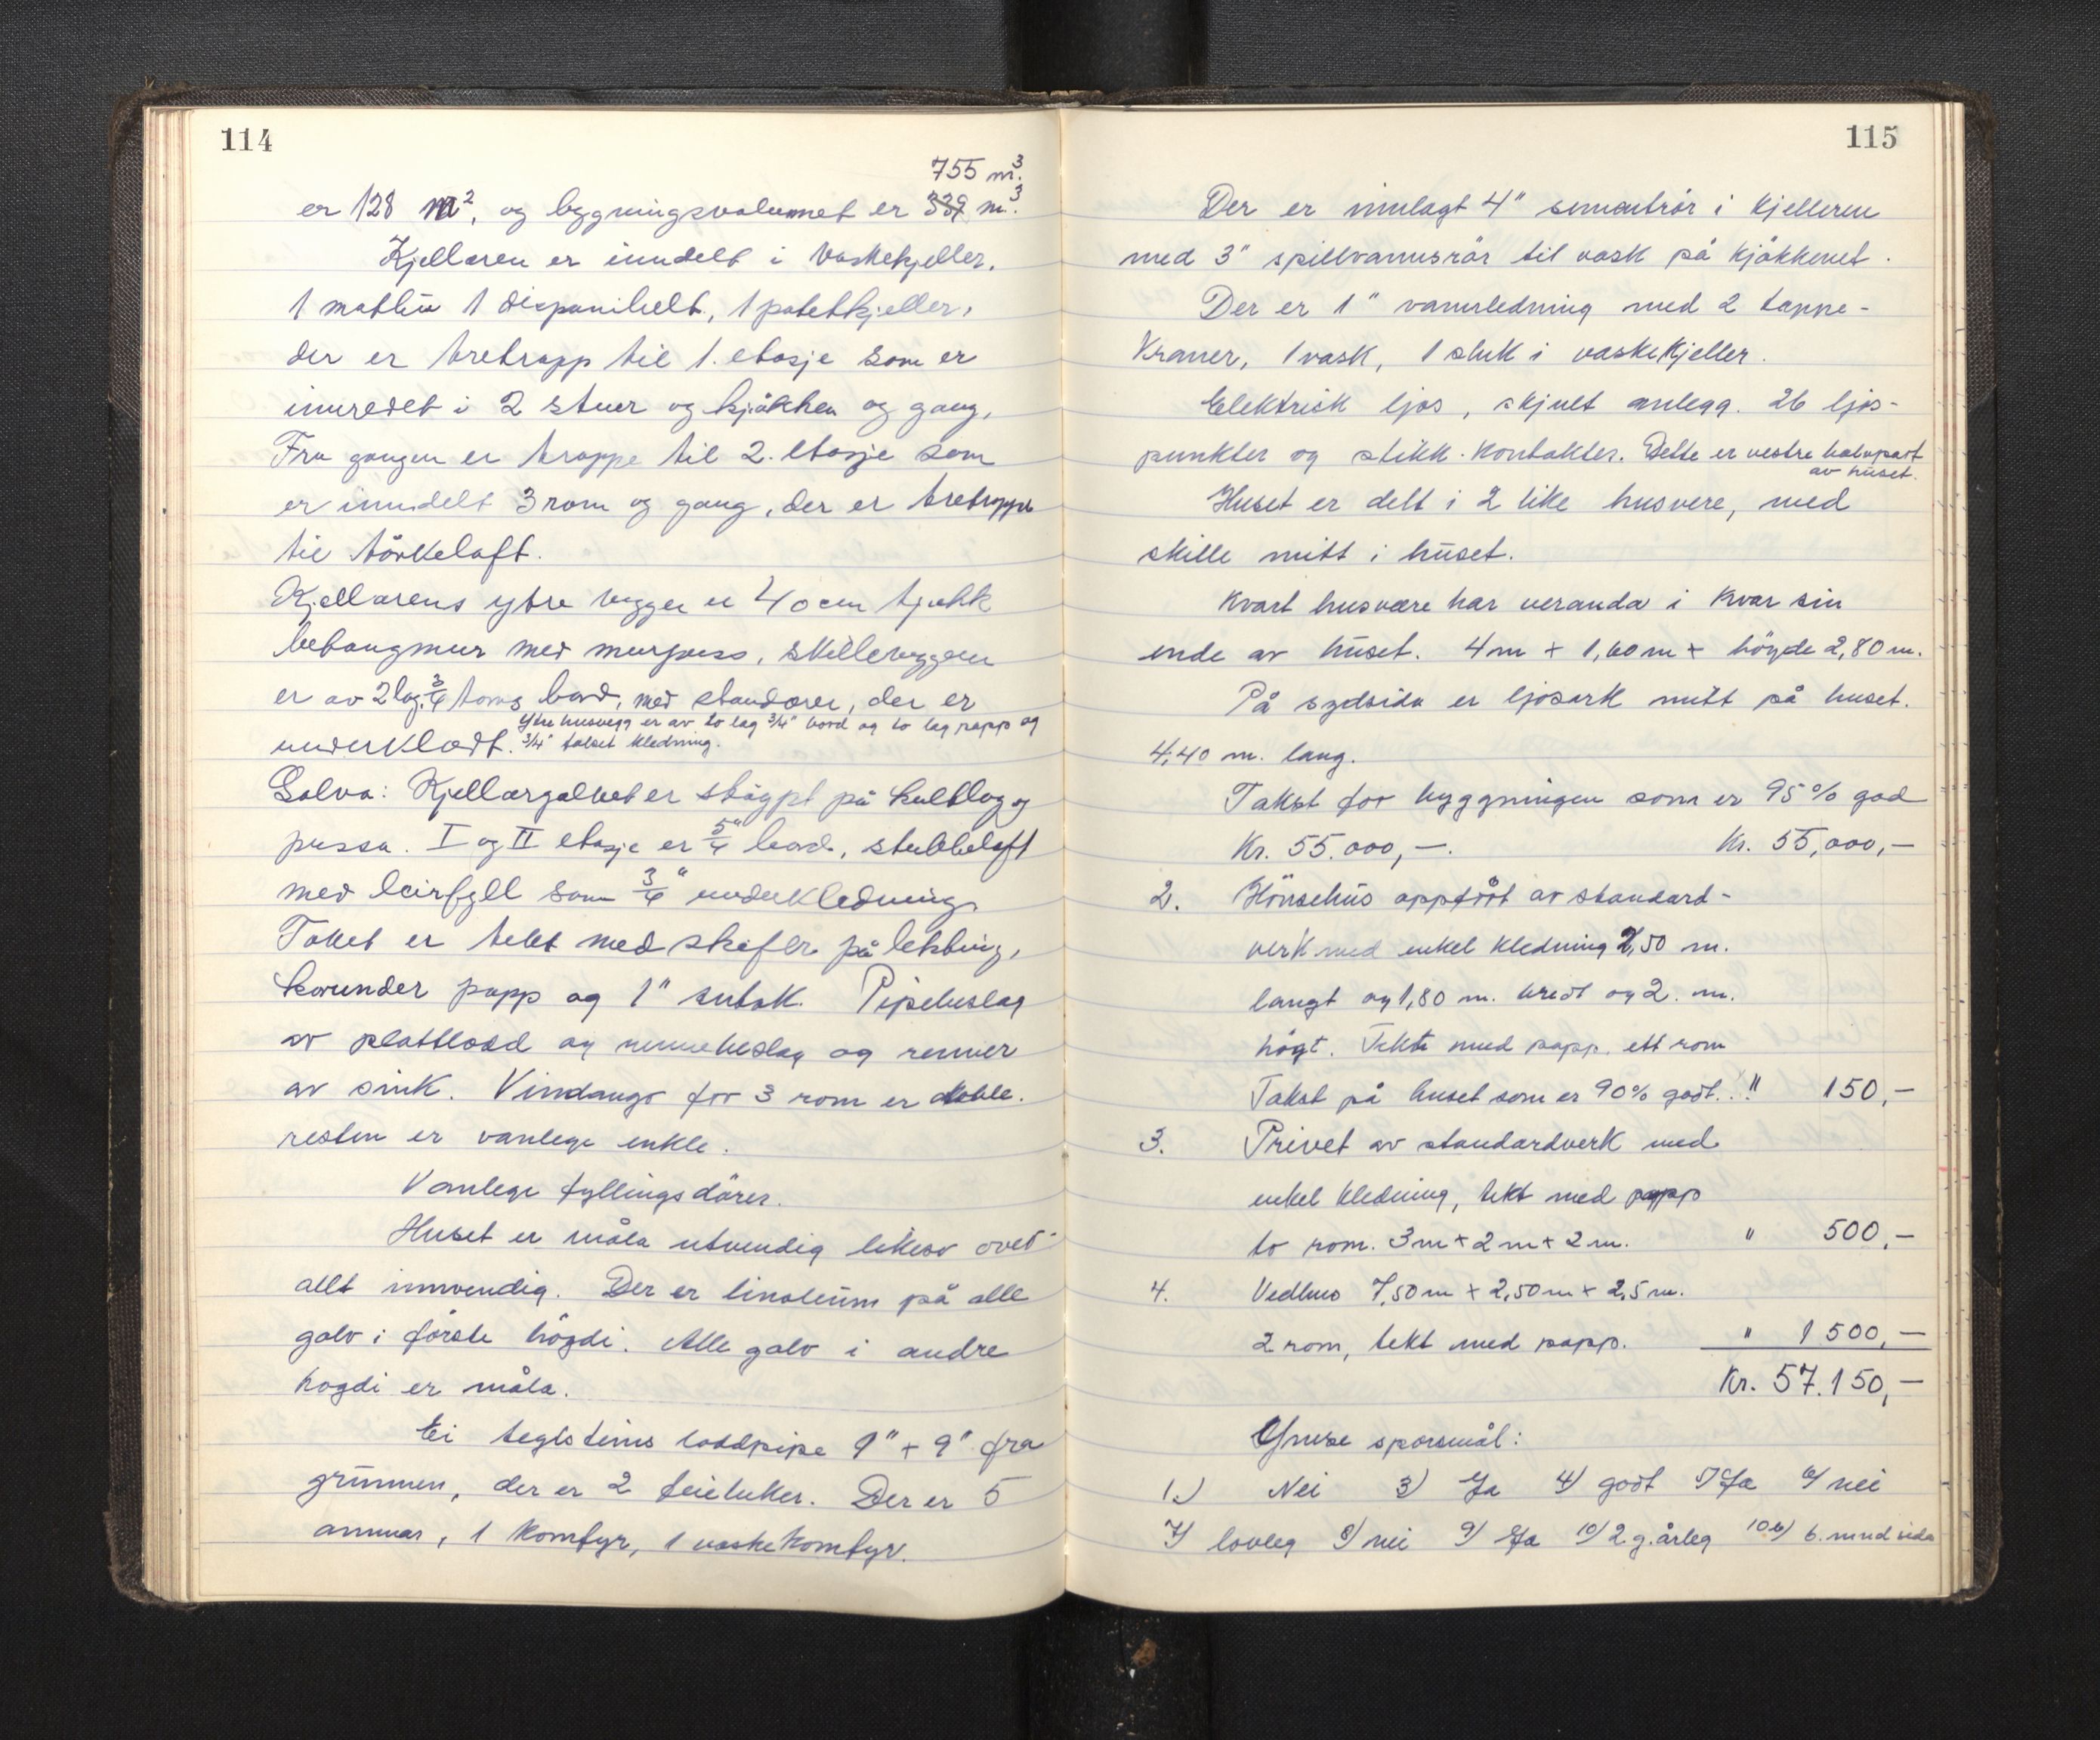 114
755 m³.
er 128 m², og bygningsvolumet er 339 m³.
Kjellaren er inndelt i vaskekjeller,
1 matbu 1 disponibelt, 1 potetkjeller,
der er tretrapp til 1. etasje som er
innredet i 2 stuer og kjøkken og gang,
Fra gangen er trappe til 2. etasje som
er inndelt 3 rom og gang, der er tretrappe
til tørkeloft.
Kjellarens ytre vegger er 40 cm tjukk
betongmur med murpuss, skilleveggene
er av 2 lag. 3/4 toms bord, med standarer, der er
Ytre husvegg er av to lag 3/4" bord og to lag papp og
underklædt. 3/4" falset kledning.
Golva: Kjellargolvet er støypt på kultlag og
pussa. I og II etasje er 5/4" bord, stubbeloft
med leirfyll som 3/4" underkledning.
Taket er tekt med skifer på lekting,
herunder papp og 1" sutak. Pipebeslag
av plattlodd og rennebeslag og renner
av sink. Vindaugo for 3 rom er doble.
resten er vanlege enkle.
Vanlege fyllingsdører.
Huset er måla utvendig likeso over-
allt innvendig. Der er linoleum på alle
golv i første høgdi. Alle golv i andre
høgdi er måla.
Ei teglsteins loddpipe 9" + 9" fra
grunnen, der er 2 feieluker. Der er 5
omnar, 1 komfyr, 1 vaskekomfyr.
115
Der er innlagt 4" sementrör i kjelleren
med 3" spillvannsrör til vask på kjökkenet.
Der er 1" vannledning med 2 tappe-
kraner, 1 vask, 1 sluk i vaskekjeller.
Elektrisk ljos, skjult anlegg. 26 ljos-
punkter og stikk-kontakter. Dette er vestre halvpart
av huset.
Huset er delt i 2 like husvere, med
skille mitt i huset.
Kvart husvære har veranda i kvar sin
ende av huset. 4m + 1,60m + höyde 2,80 m.
På sydsida er ljosark mitt på huset.
4,40 m. lang.
Takst for byggningen som er 95% god
Kr. 55.000,—. Kr. 55,000,—
2. Hönsehus oppfört av standard-
verk med enkel kledning 2,50 m.
langt og 1,80 m. bredt og 2. m.
högt. Tekt med papp. ett rom
Takst på huset som er 90% godt. " 150,—
3. Privet av standardverk med
enkel kledning, tekt med papp
to rom. 3m + 2m + 2m. " 500,—
4. Vedhus 7,50m + 2,50m + 2,5m.
2 rom, tekt med papp. " 1500,—
Kr. 57.150,—
Ymse sporsmål:
1.) Nei 3) Ja 4) godt 5) Ja 6) nei
7) lovleg 8) nei 9) Ja 10) 2 g. årleg 10b) 6. mnd sida